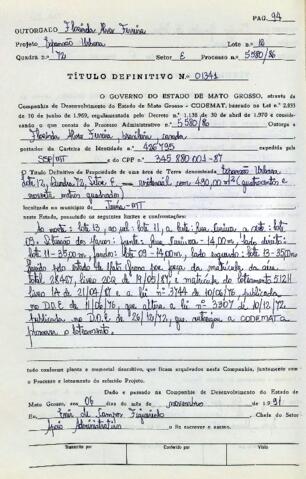 PAG. 94
OUTORGADO Florinda Alves Ferreira
Projeto Expansão Urbana Lote n.o 12
Quadra n.o 72 Setor E Processo n.o 5580/86
TÍTULO DEFINITIVO N.o 01341
O GOVERNO DO ESTADO DE MATO GROSSO, através da
Companhia de Desenvolvimento do Estado de Mato Grosso - CODEMAT, baseado na Lei n.o
10 de junho de 1.969, regulamentada pelo Decreto n.o 1.138 de 30 de abril de 1.970 e considerando
o que consta do Processo Administrativo n.o 5580/86 Outorga a
Florinda Alves Ferreira, brasileira, casada
portador da Carteira de Identidade n.o 426795 expedida pela
SSP/MT e do CPF n.o 345 880 001-87
O Título Definitivo de Propriedade de uma área de Terra denominada Expansão Urbana
lote 12, Quadra 72, Setor E - com 490,00 m² (quatrocentos e
noventa metros quadrados)
localizado no município de MT
neste Estado, possuindo os seguintes limites e confrontações:
Ao norte: lote 13, ao sul: lote 11, a leste: Rua oeste: lote
09. Situação dos lados: frente: Rua 14,00m, lado direito:
lote 11-35,00m, fundos: lote 09-14,00m, lado esquerdo: lote 13-35,00m
pelo Estado de Mato Grosso por força da matrícula da área
total livro 2CQ de 19/03/87, e matrícula do loteamento 5.124
livro 1A de 21/04/87 e a lei nº 3744 de 10/06/76, publicada
no D.O.E de 11/06/76, que altera a lei nº 3307 de 10/12/72
publicada no D.O.E de 26/10/72, que autoriza a CODEMAT a
promover o loteamento.
tudo conforme planta e memorial descritivo, que ficam arquivados nesta Companhia, juntamente com
o Processo e loteamento do referido Projeto.
Dado e passado na Companhia de Desenvolvimento do Estado de
Mato Grosso, aos 06 dias do mês de novembro de 1.991
Eu, de Campos Figueiredo Chefe do Setor
Apoio Administrativo o fiz escrever e assino.
Transcrito por Conferido por Visto